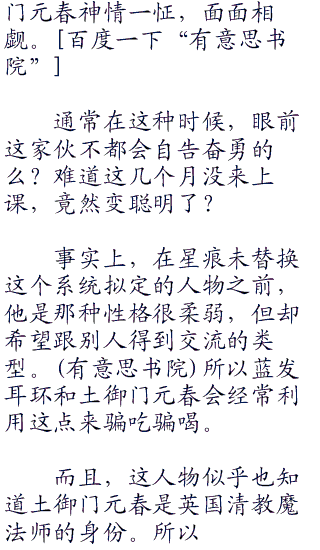 门元春神情一怔，面面相
觑。[百度一下“有意思书
院”]
通常在这种时候，眼前
这家伙不都会自告奋勇的
么？难道这几个月没来上
课，竟然变聪明了？
事实上，在星痕未替换
这个系统拟定的人物之前，
他是那种性格很柔弱，但却
希望跟别人得到交流的类
型。(有意思书院)所以蓝发
耳环和土御门元春会经常利
用这点来骗吃骗喝。
而且，这人物似乎也知
道土御门元春是英国清教魔
法师的身份。所以